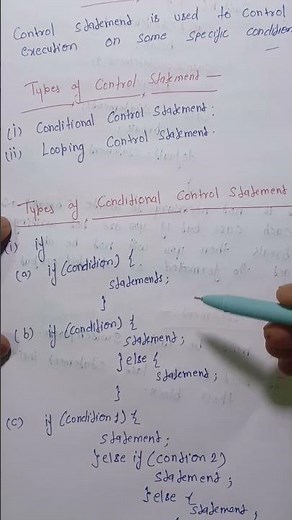 Control statement is used to control
execution on some specific condition
Types of Control Statement —
(i) Conditional Control Statement:
(ii) Looping Control Statement.
Types of Conditional Control Statement
(i) if
(a) if (condition) {
statements;
}
(b) if (condition) {
statement;
} else {
statement;
}
(c) if (condition 1) {
statement;
} else if (condtion 2)
statement;
} else {
statement;